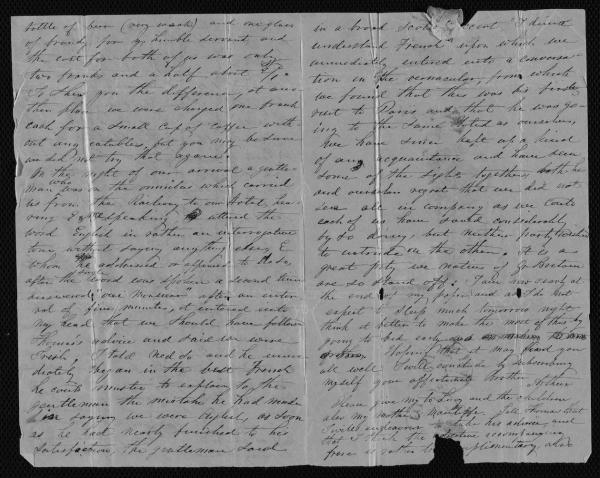 bottle of beer (very weak) and one glass
of brandy for my humble servant and
the cost for both of us was only
two franks and a half about 2/1.
To shew you the difference, at ano
ther place we were charged one frank
each for a small cup of coffee with
out any eatables, but you may be sure
we did not try that again.
On the night of our arrival a gentle
man was in the omnibus which carried
us from the Railway to our Hotel, hea
ring E speaking uttered the
word English in rather an interrogative
tone without saying anything else, E
whom he addressed or appeared to do so,
after the word was spoken a second time
answered "oui Monsieur" after an inter
val of five minutes, it entered into
my head that we should have followed
Thomas's advice and said we were
Irish, I told Ned so and he imme
diately began in the best French
he could muster to explain to the
gentleman the mistake he had made
in saying we were English, as soon
as he had nearly finished to his
satisfaction, the gentleman said
in a broad Scotch accent "I dinna
understand French" upon which we
immediately entered into a conversa
tion in the vernacular, from which
we found that this was his first
visit to Paris and that he was go
ing to the same Hotel as ourselves,
we have since kept up a kind
of an acquaintance and have seen
some of the sights together, both he
and ourselves regret that we did not
see all in company as we could
each of us have saved considerably
by so doing but neither party
to intrude on the other. It is a
great pity we natives of Gt Britain
are so stand off. I am now nearly at
the end of my paper and as I do not
expect to sleep much tomorrow night
think it better to make the most of this by
going to bed early
Hoping that it may find you
all well I will conclude by subscribing
myself your affectionate Brother Arthur
Please give my love to Lucy and the children
also my mother Tell Thomas that
I will endeavour to take his advice, and
that I think the
free is rather complimentary, also